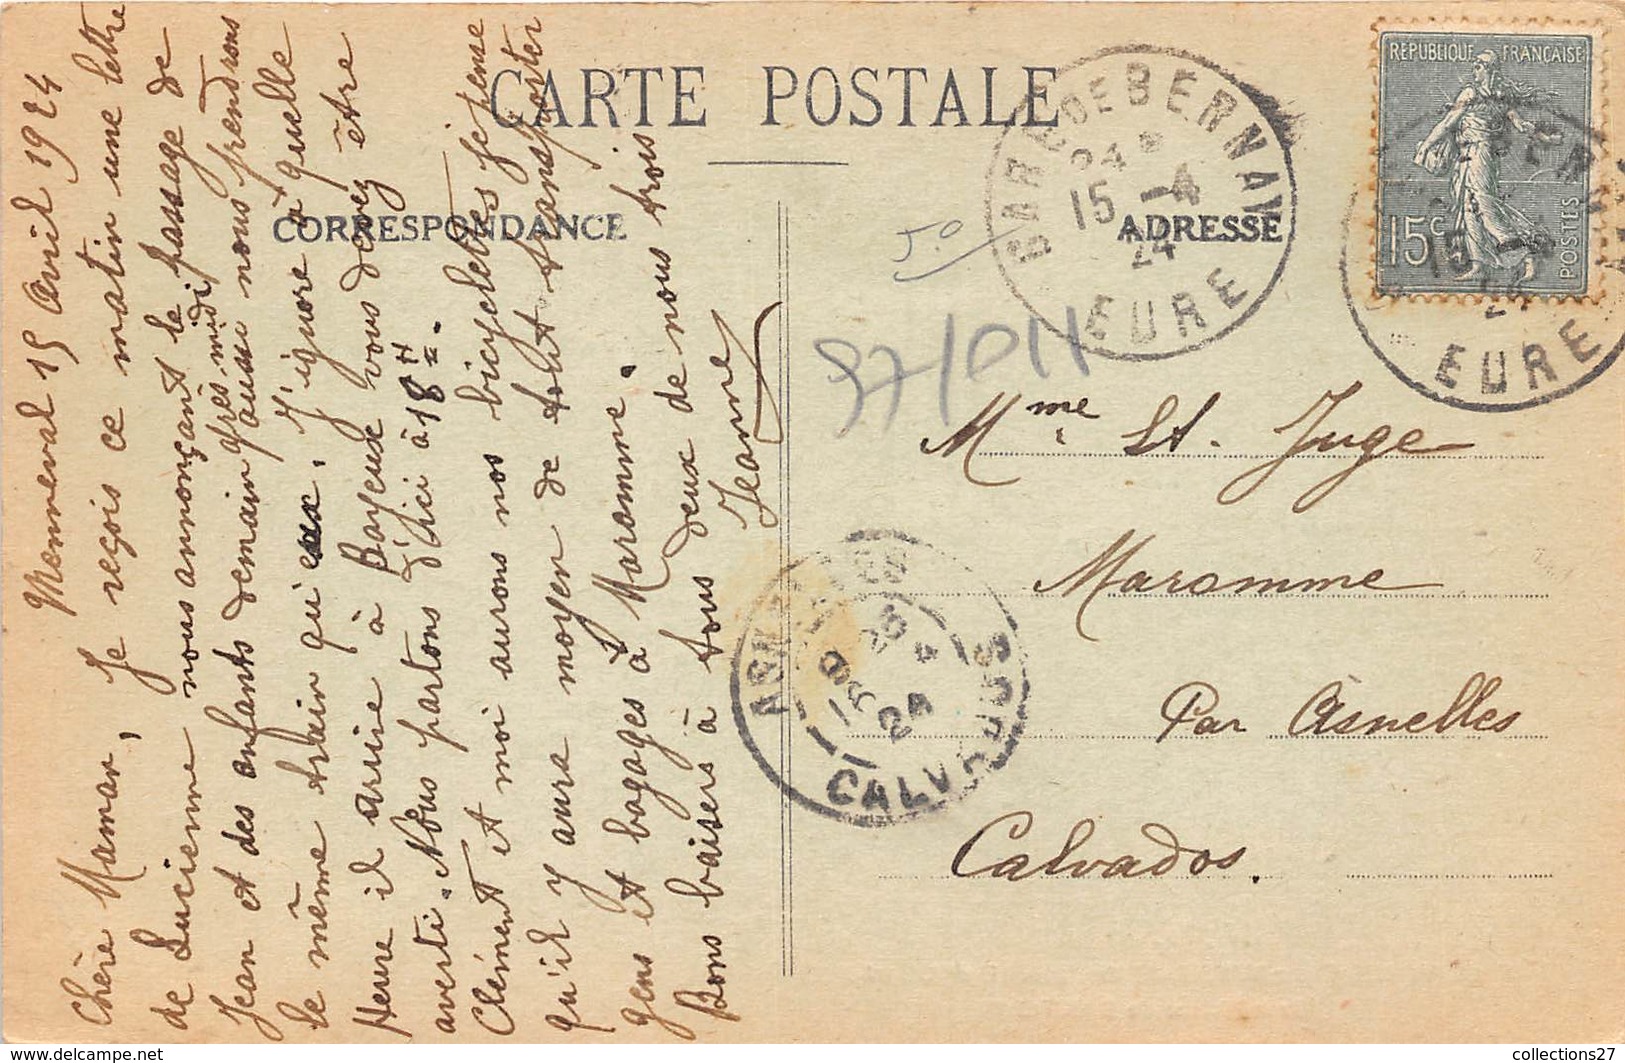 CARTE POSTALE
CORRESPONDANCE
ADRESSE
Menneval 15 Avril 1924
Chère Maman, Je reçois ce matin une lettre
de Lucienne nous annonçant le passage de
Jean et des enfants demain après midi aussi nous prendrons
le même train qu'eux. J'ignore à quelle
Heure il arrive à Bayeux vous devez être
averti. Nous partons d'ici à 18H.
Clément et moi aurons nos bicyclettes je pense
qu'il y aura moyen de tout transporter
gens et bagages à Maromme.
Bons baisers à tous deux de nous trois
Jeanne
50
97/011
Mme St. Juge
Maromme
Par Asnelles
Calvados.
REPUBLIQUE FRANÇAISE
15c
POSTES
GARE DE BERNAY
24 *
15 -4
24
EURE
BERNAY
15 -4
24
EURE
ASNELLES
CALVADOS
24
www.delcampe.net
collections27